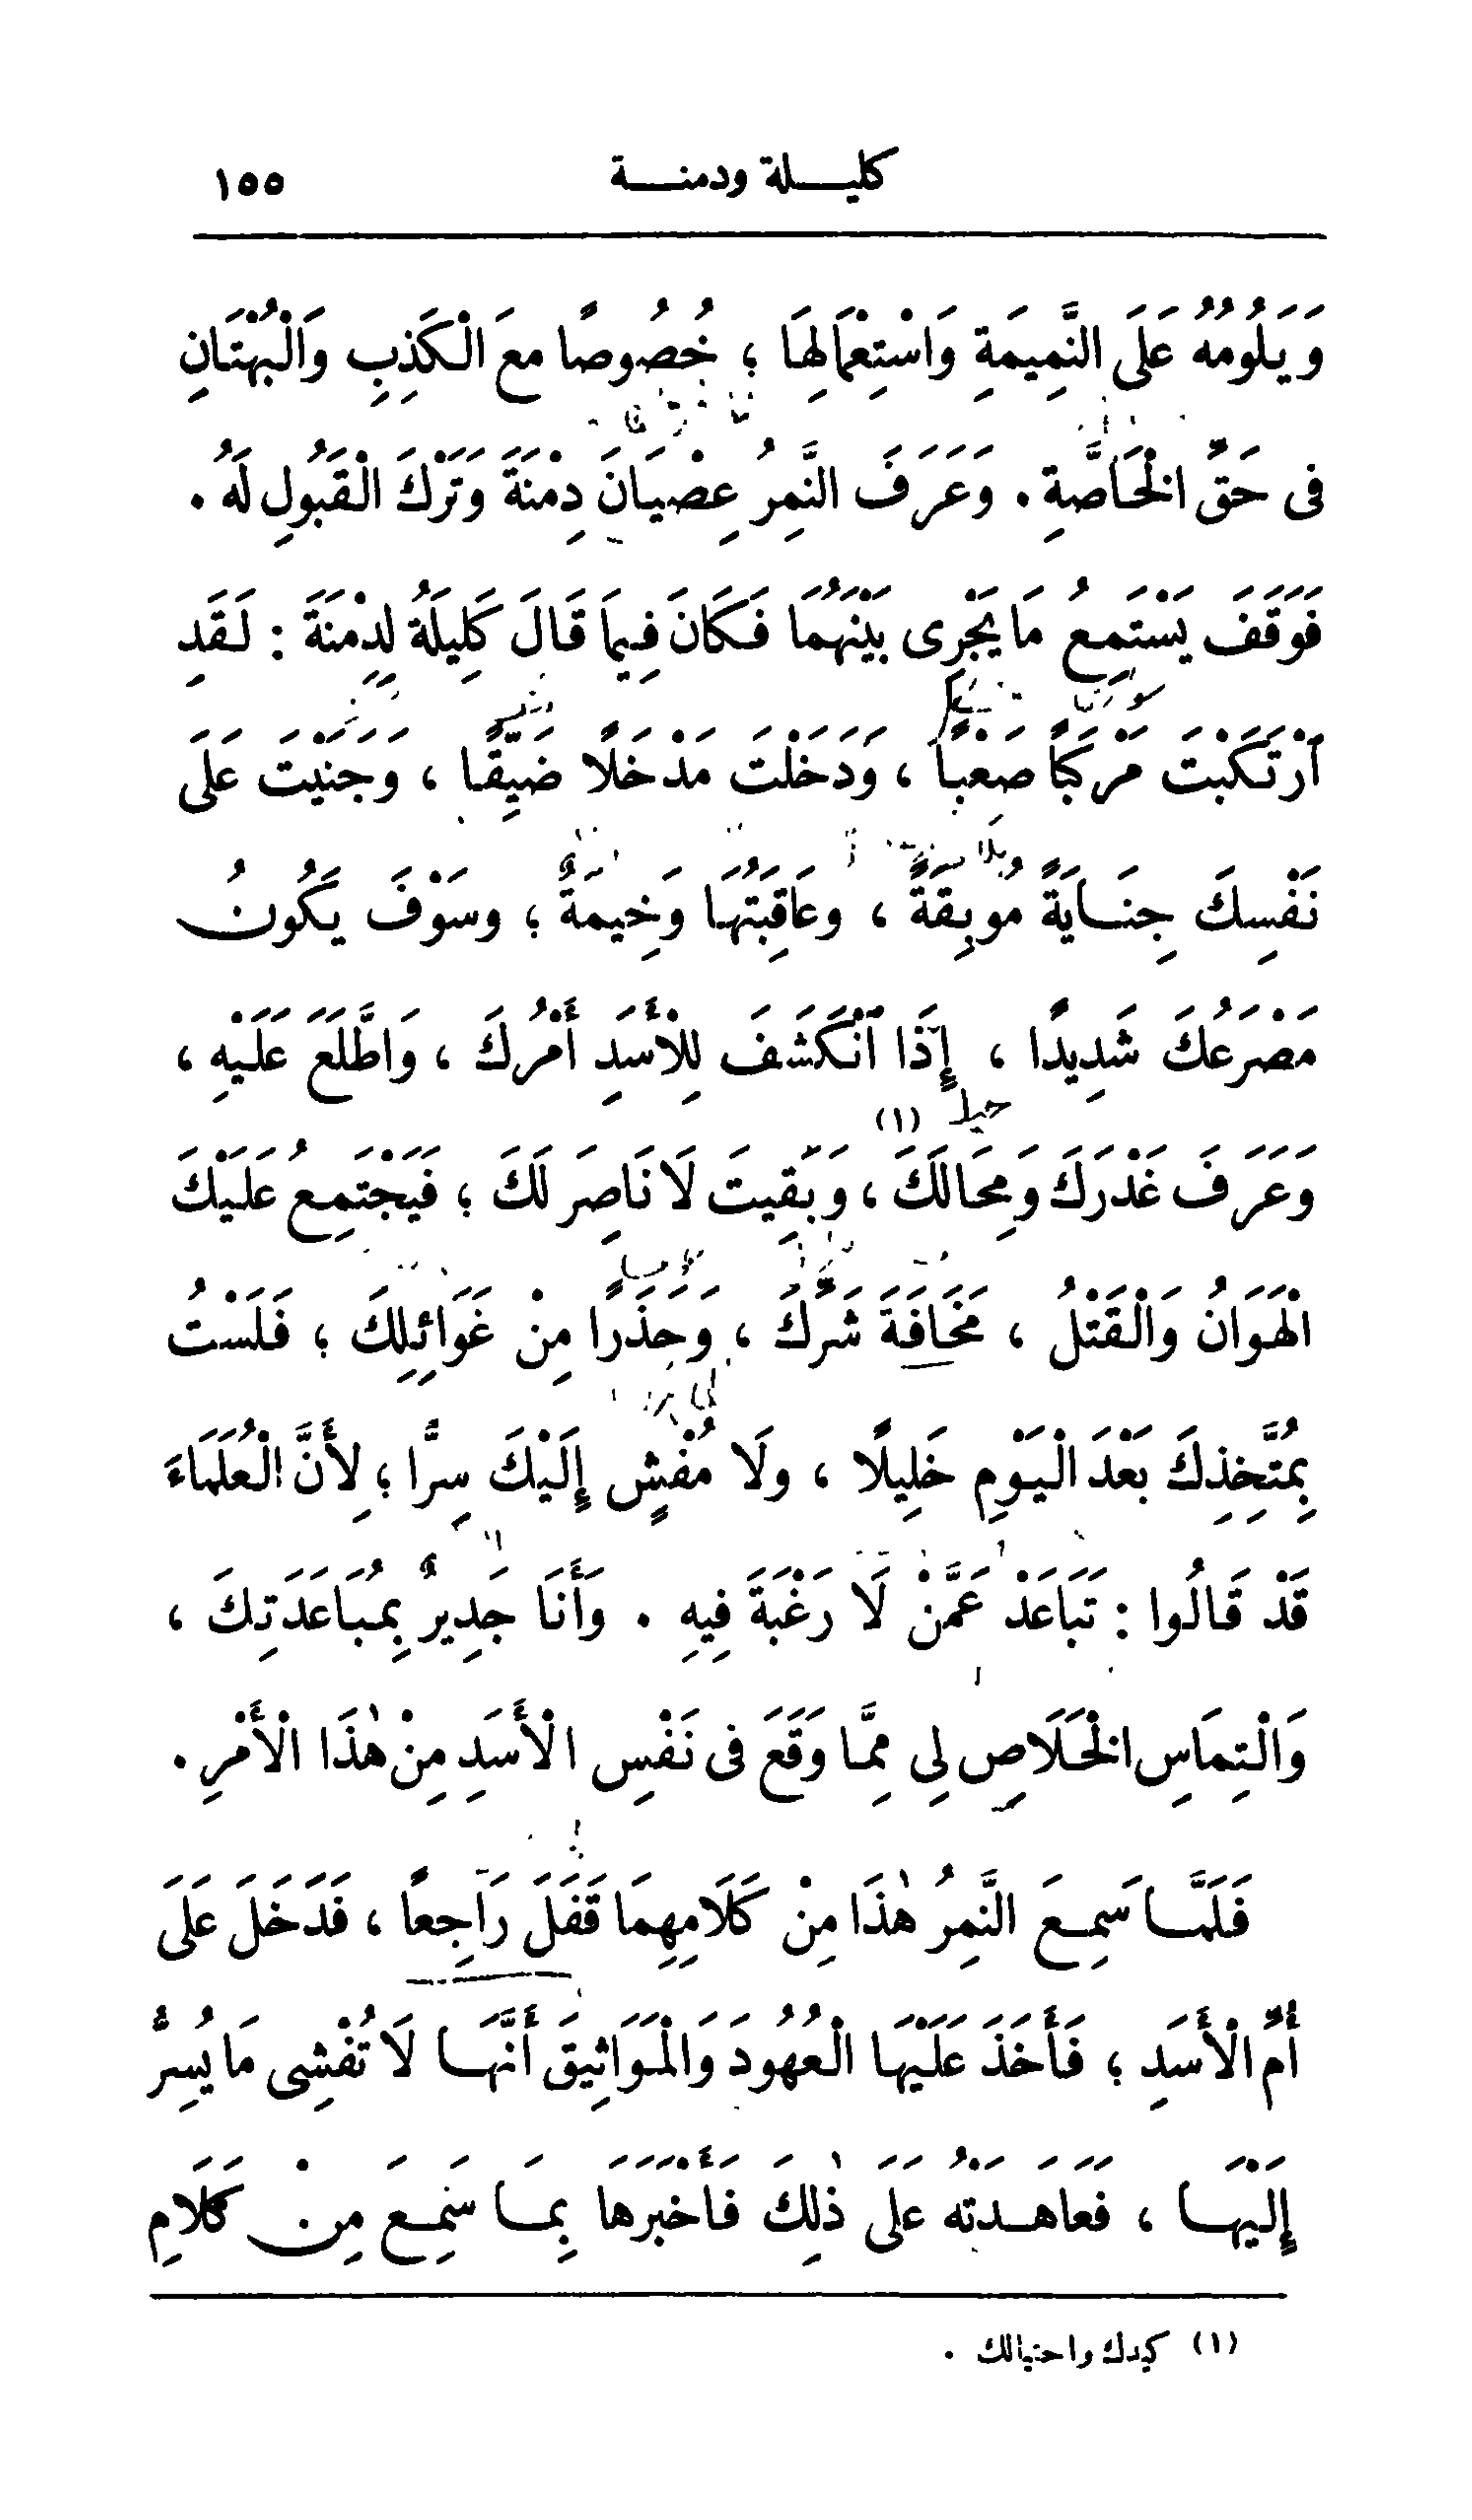 كليـــلة ودمنـــة ١٥٥
وَيَلُومُهُ عَلَى النَّمِيمَةِ وَاسْتِعْمَالِهَا ؛ خُصُوصًا مَعَ الْكَذِبِ وَالْبُهْتَانِ
فى حَقِّ الْخَاصَّةِ . وَعَرَفَ النَّمِرُ عِصْيَانَ دِمْنَةَ وَتَرْكَ الْقَبُولِ لَهُ .
فَوَقَفَ يَسْتَمِعُ مَا يَجْرِى بَيْنَهُمَا فَكَانَ فِيمَا قَالَ كَلِيلَةُ لِدِمْنَةَ : لَقَدِ
ٱرْتَكَبْتَ مَرْكَبًا صَعْبًا ، وَدَخَلْتَ مَدْخَلًا ضَيِّقًا ، وَجَنَيْتَ عَلَى
نَفْسِكَ جِنَـايَةً مُوبِقَةً ، وعَاقِبَتُهَا وَخِيمَةٌ ؛ وسَوْفَ يَكُونُ
مَصْرَعُكَ شَدِيدًا ، إِذَا ٱنْكَشَفَ لِلْأَسَدِ أَمْرُكَ ، وَاطَّلَعَ عَلَيْهِ ،
وَعَرَفَ غَدْرَكَ وَمِحَالَكَ (١) ، وَبَقِيتَ لَا نَاصِرَ لَكَ ؛ فَيَجْتَمِعُ عَلَيْكَ
الْهَوَانُ وَالْقَتْلُ ، مَخَافَةَ شَرِّكَ ، وَحَذَرًا مِنْ غَوَائِلِكَ ؛ فَلَسْتُ
بِمُتَّخِذِكَ بَعْدَ الْيَوْمِ خَلِيلًا ، ولَا مُفْشٍ إِلَيْكَ سِرًّا ؛ لِأَنَّ الْعُلَمَاءَ
قَدْ قَالُوا : تَبَاعَدْ عَمَّنْ لَا رَغْبَةَ فِيهِ . وَأَنَا جَدِيرٌ بِمُبَاعَدَتِكَ ،
وَالْتِمَاسِ الْخَلَاصِ لِي مِمَّا وَقَعَ فى نَفْسِ الْأَسَدِ مِنْ هٰذَا الْأَمْرِ .
فَلَمَّـا سَمِـعَ النَّمِرُ هٰذَا مِنْ كَلَامِهِمَا قَفَلَ رَاجِعًا ، فَدَخَلَ عَلَى
أُمِّ الْأَسَدِ ؛ فَأَخَذَ عَلَيْهَا الْعُهُودَ وَالْمَوَاثِيقَ أَنَّهَـا لَا تُفْشِى مَا يُسِرُّ
إِلَيْهَـا ، فَعَاهَـدَتْهُ عَلَى ذٰلِكَ فَأَخْبَرَهَا بِمَـا سَمِـعَ مِنْ كَلَامِ
(١) كيدك واحتيالك .